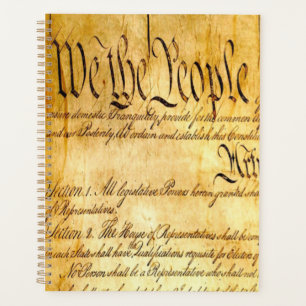 We the People
insure domestic Tranquility, provide for the common
and our Posterity, do ordain and establish this Constitu
Art
Section. 1. All legislative Powers herein granted shall
of Representatives.
Section. 2. The House of Representatives shall be com
in each State shall have the Qualifications requisite for Electors of
No Person shall be a Representative who shall not